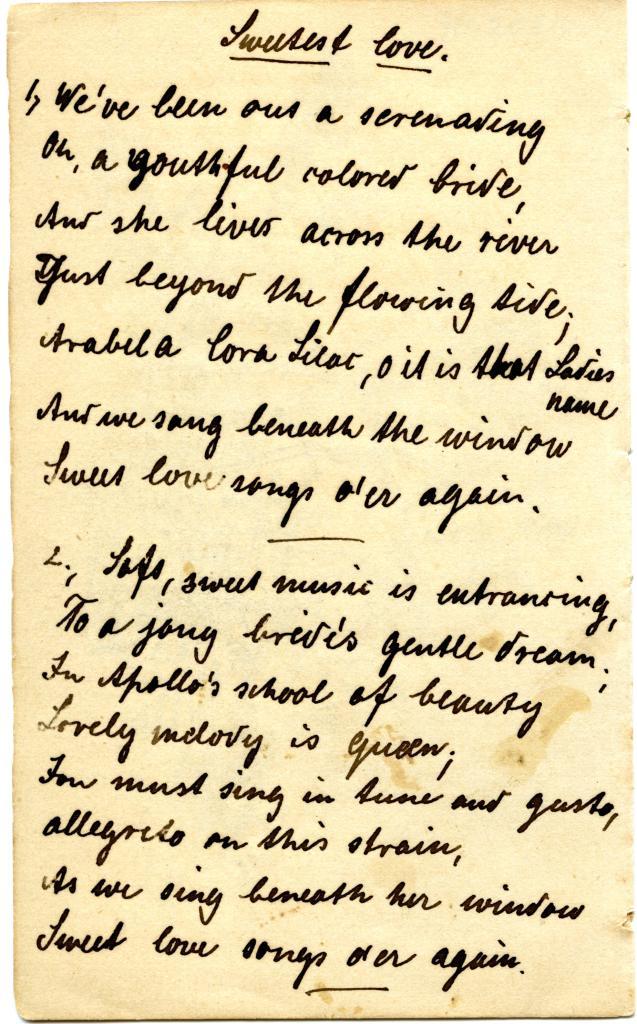 Sweetest love.
1, We've been out a serenading
On, a youthful colored bride,
And she lives across the river
Just beyond the flowing tide;
Arabela Cora Lilac, o it is that Ladies
name
And we sang beneath the window
Sweet love songs o'er again.
2., Soft, sweet music is entrancing,
To a jong bride's gentle dream;
In Apollo's school of beauty
Lovely melody is queen;
You must sing in tune and gusto,
allegreto on this strain,
As we sing beneath her window
Sweet love songs o'er again.